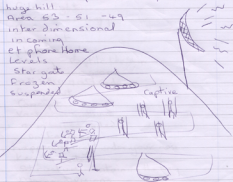 huge hill
Area 53 - 51 - 49
inter dimensional
in coming
et phone Home
Levels
Star gate
Frozen
Suspended
Captive